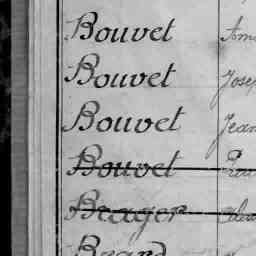 Bouvet
Bouvet Jose
Bouvet Jean
Bouvet
Brager